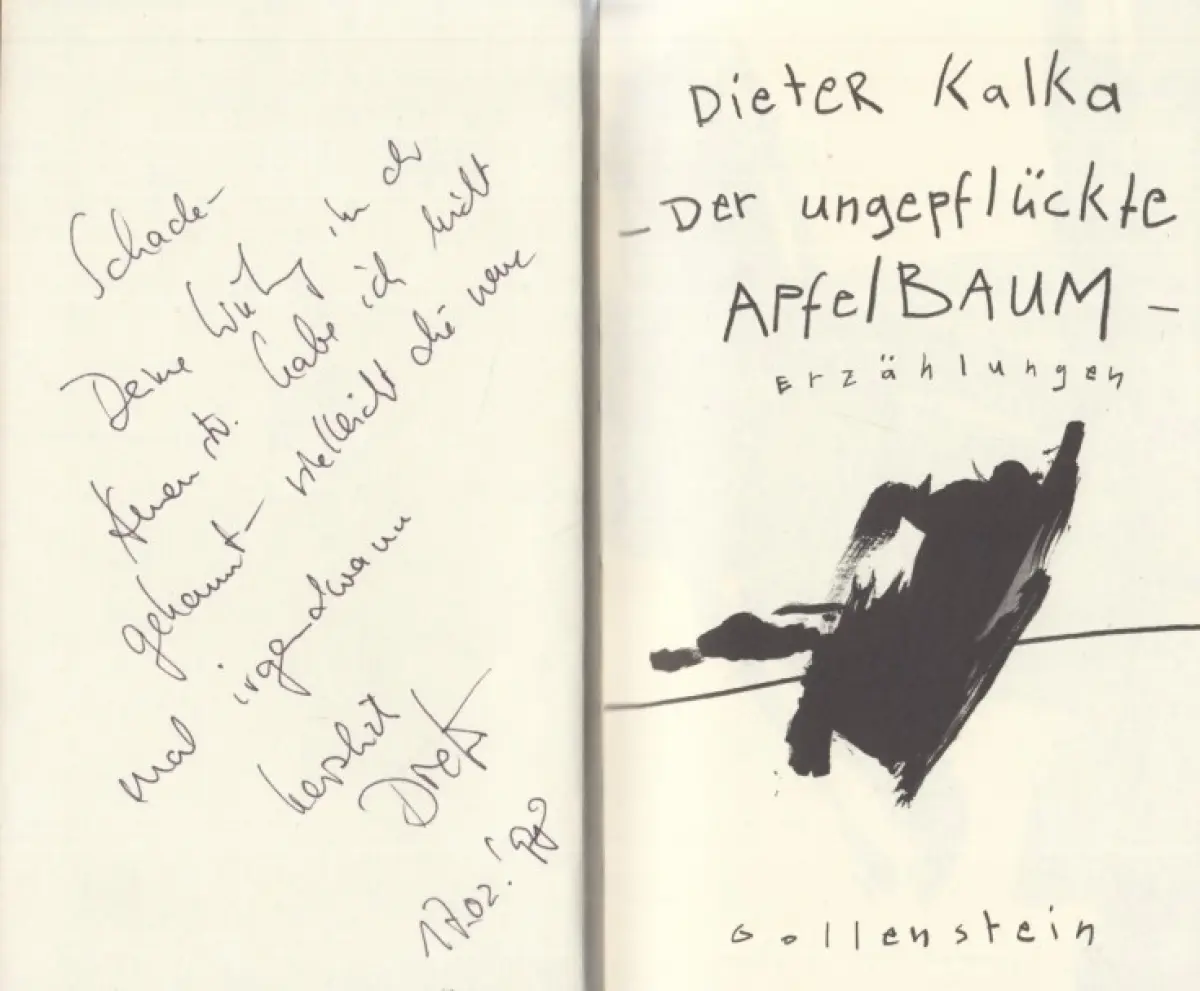 Schade-
Deine in der
habe ich nicht
gekannt – vielleicht die neue
mal irgendwann
herzlichst
Dieter
17.02.'98
Dieter Kalka
– Der ungepflückte
ApfelBAUM –
Erzählungen
Gollenstein